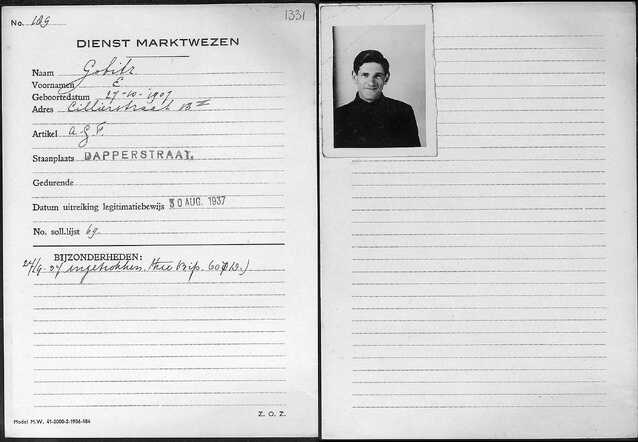 No. 129
1331
DIENST MARKTWEZEN
Naam Gobitz
Voornamen E
Geboortedatum 27-10-1907
Adres Cilliersstraat
Artikel a.g.F.
Staanplaats DAPPERSTRAAT.
Gedurende
Datum uitreiking legitimatiebewijs 30 AUG. 1937
No. soll.lijst 69.
BIJZONDERHEDEN:
ingetrokken.
Z. O. Z.
Model M.W. 41-2000-2-1936-184